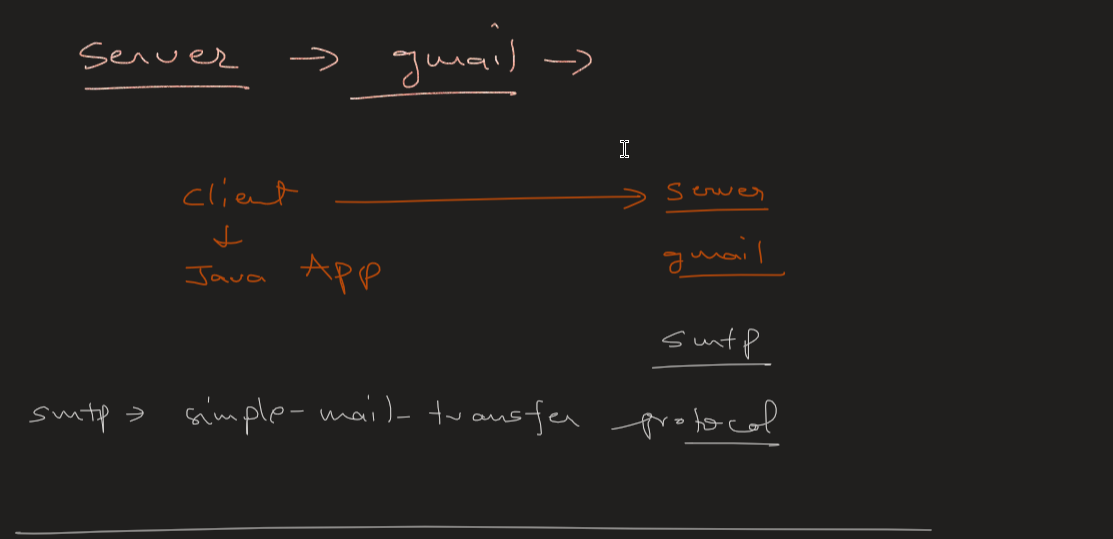 Server → gmail →
Client → Server
↓
Java App gmail
smtp
smtp → simple-mail-transfer protocol